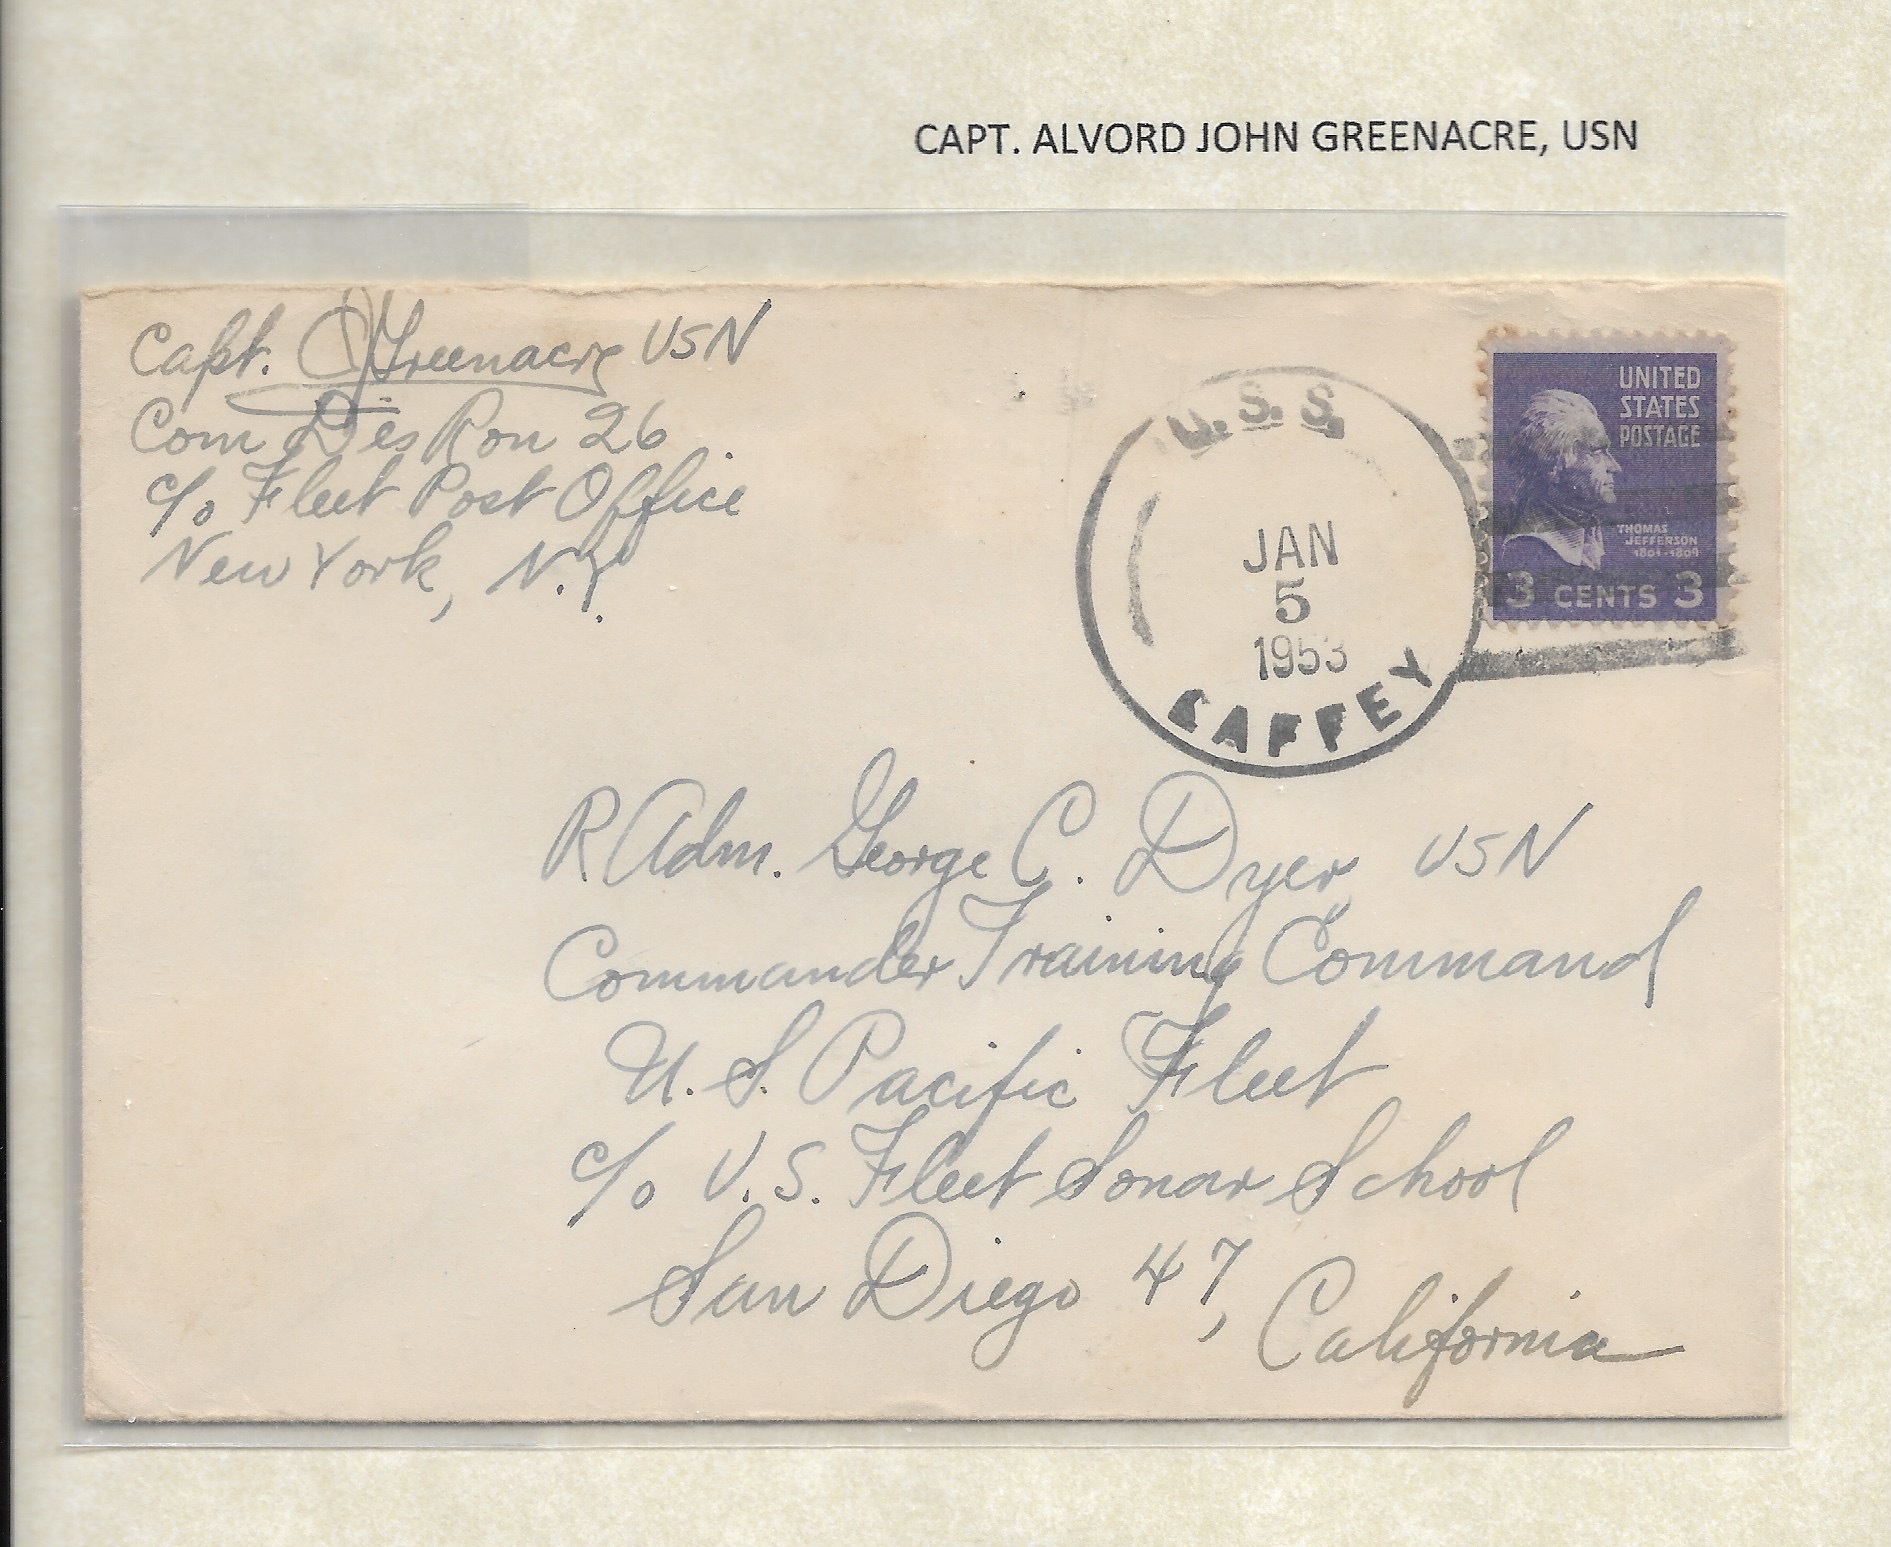 CAPT. ALVORD JOHN GREENACRE, USN
Capt. AJGreenacre USN
Com Des Ron 26
c/o Fleet Post Office
New York, N.Y.
U.S.S.
JAN
5
1953
LAFFEY
UNITED
STATES
POSTAGE
THOMAS
JEFFERSON
1801-1809
3 CENTS 3
R Adm. George C. Dyer USN
Commander Training Command
U.S. Pacific Fleet
c/o U.S. Fleet Sonar School
San Diego 47,
California